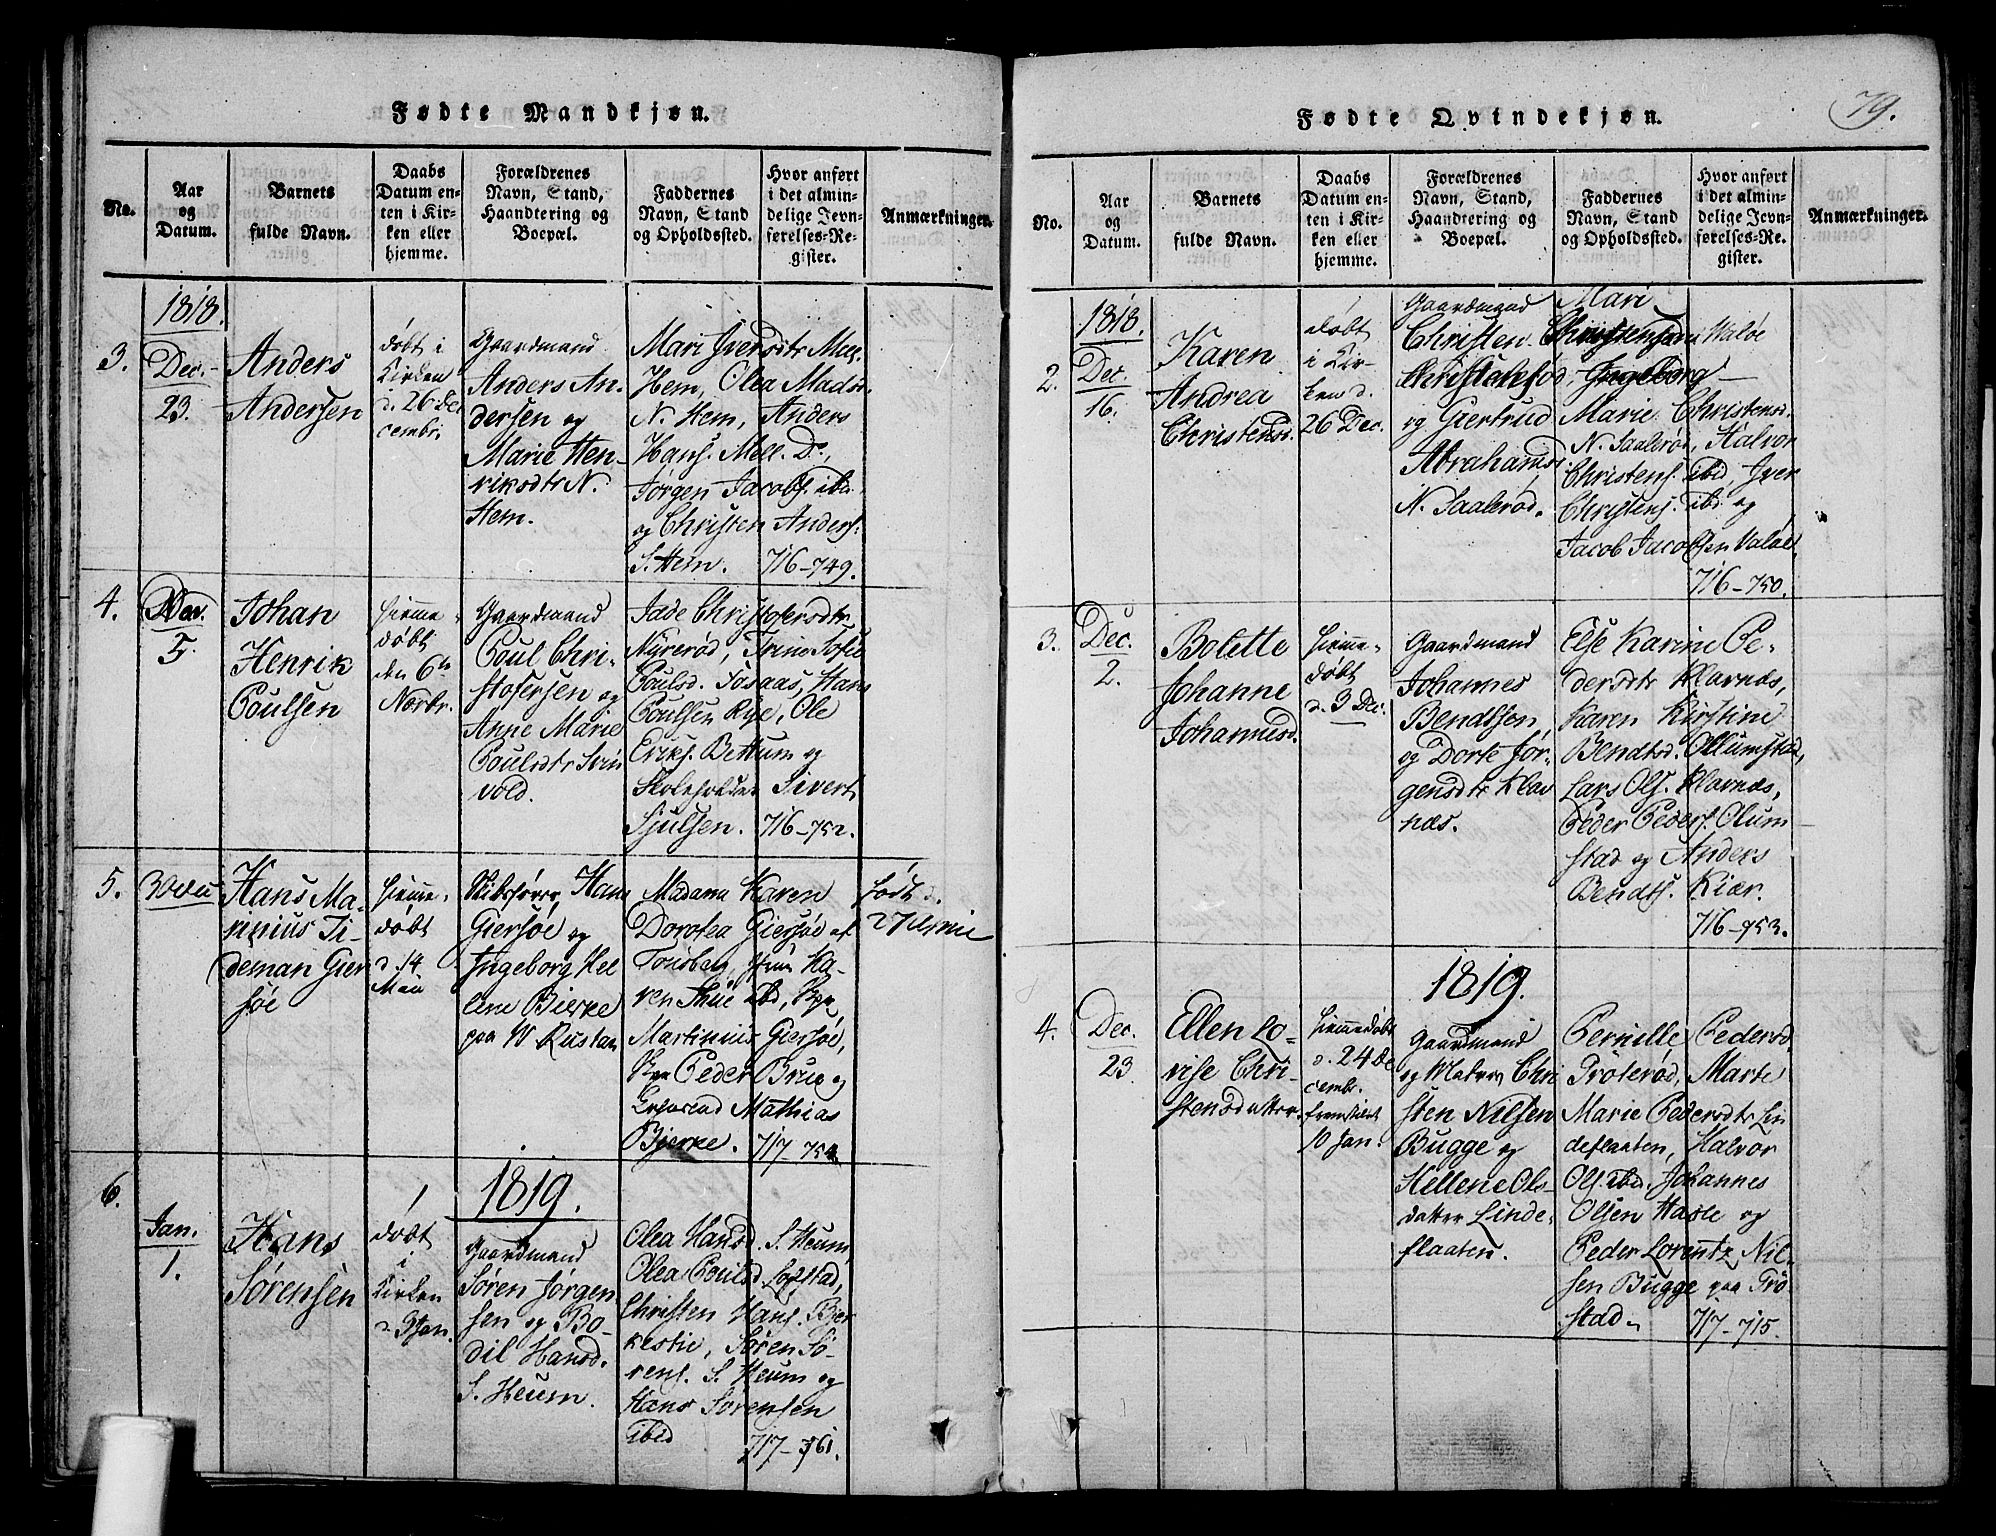 Fødte Mandkjøn.
No.
Aar
og
Datum.
Barnets
fulde Navn.
Daabs
Datum en-
ten i Kir-
ken eller
hjemme.
Forældrenes
Navn, Stand,
Haandtering og
Boepæl.
Faddernes
Navn, Stand
og Opholdssted.
Hvor anført
i det almin-
delige Jevn-
førelses-Re-
gister.
Anmærkninger.
3.
1818.
Dec.
23.
Anders
Andersen
døbt i
Kirken
d. 26 De
cembr.
Gaardmand
Anders An-
dersen og
Marie Hen-
riksdtr N.
Hem.
Mari Iversdtr Mell.
Hem, Olea Madsd.
N. Hem, Anders
Hans. Mell. Do.,
Jørgen Jacobs. ibd.
og Christen Anders.
S. Hem. 716-749.
4.
5.
Johan
Henrik
Poulsen
Hjemme-
døbt
den 6te
Novbr.
Gaardmand
Poul Chri-
stofersen og
Anne Marie
Poulsdtr Svin
vold.
Christofersdtr
Trine Sofie
Poulsd. Fosaas, Hans
Poulsen Rye, Ole
Eriks. Bettum og
Skoleholder Sivert
Sjulsen. 716-752.
5.
Hans Ma-
rinius Ti-
deman Gier
søe
Hjemme-
døbt
d. 14
Mai
Skibsfører Hans
Giersøe og
Ingeborg Hel
lene Bierke
paa
Madame Karen
Dorotea Giersøe af
Tønsberg, Ka-
ren Thue ibd,
Martinius Giersøe,
Peder Brue og
Mathias
Bjerke. 717-754
født d.
6.
1819.
Jan.
1.
Hans
Sørensen
døbt
i
Kirken
Gaardmand
Søren Jørgen
sen og Bo-
dil Hansd.
S. Heum.
Olea Hansd. S. Heum,
Olea Poulsd Lofstad,
Christen Hans. Bjer
kestie, Søren Sø-
rens. S. Heum og
Hans Sørensen
ibid 717-761.
Fødte Qvindekjøn.
79.
No.
Aar
og
Datum.
Barnets
fulde Navn.
Daabs
Datum en-
ten i Kir-
ken eller
hjemme.
Forældrenes
Navn, Stand,
Haandtering og
Boepæl.
Faddernes
Navn, Stand
og Opholdssted.
Hvor anført
i det almin-
delige Jevn-
førelses-Re-
gister.
Anmærkninger.
2.
1818.
Dec.
16.
Karen
Andrea
Christensd.
døbt
i Kir-
ken d.
26 Dec.
Gaardmand
Christen
og Giertrud
Abrahamsd.
N. Saalerød.
Mari
Valøe
Ingeborg
Marie Christensd.
N. Saalerød, Halvor
Christens. ibid, Iver
Christens. ibd og
Jacob Jacobsen Valøe.
716-750.
3.
Dec.
2.
Bolette
Johanne
Johannesd.
Hjemme-
døbt
d. 3 Dec.
Gaardmand
Johannes
Bendtsen,
og Dorte Jør-
gensdtr Klav
næs.
Else Karine Pe-
dersdtr Klavnæs,
Karen Kirstine
Bendtsd. Ollumstad,
Lars Ols. Klavnæs,
Peder Peders. Olum-
stad og Anders
Bendts. Kiær.
716-753.
4.
1819.
Dec.
23
Ellen Lo-
vise Chri-
stensdatter
Hjemmedøbt
d. 24 De
cembr.
fremstilet
10 Jan.
Gaardmand
og Chri
sten Nilsen
Bugge og
Hellene Ols-
datter Linde-
flaaten.
Pernille Pedersd.
Trøterød, Marte
Marie Pedersdtr Lin
deflaaten, Halvor
Ols. ibd. Johannes
Olsen Hasle og
Peder Lorentz Nil-
sen Bugge paa Trø
stad. 717-715.